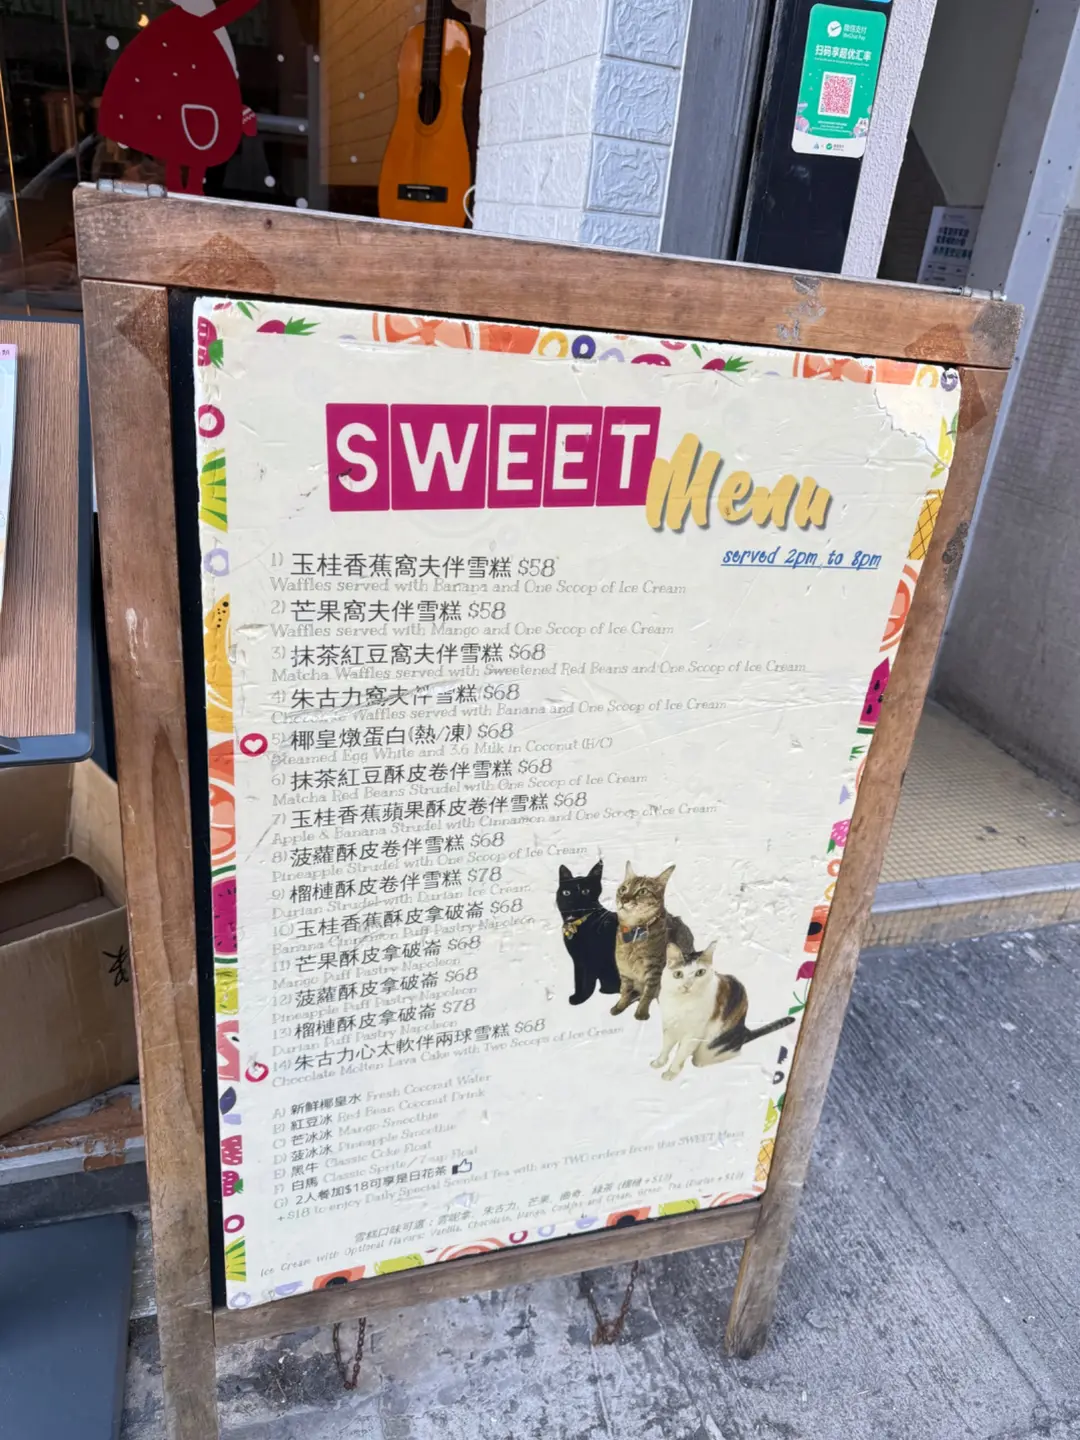 微信支付
WeChat Pay
扫码享超优汇率
SWEET Menu
served 2pm to 8pm
1) 玉桂香蕉窩夫伴雪糕 $58
Waffles served with Banana and One Scoop of Ice Cream
2) 芒果窩夫伴雪糕 $58
Waffles served with Mango and One Scoop of Ice Cream
3) 抹茶紅豆窩夫伴雪糕 $68
Matcha Waffles served with Sweetened Red Beans and One Scoop of Ice Cream
4) 朱古力窩夫伴雪糕 $68
Chocolate Waffles served with Banana and One Scoop of Ice Cream
5) 椰皇燉蛋白(熱/凍) $68
Steamed Egg White and 3.6 Milk in Coconut (H/C)
6) 抹茶紅豆酥皮卷伴雪糕 $68
Matcha Red Beans Strudel with One Scoop of Ice Cream
7) 玉桂香蕉蘋果酥皮卷伴雪糕 $68
Apple & Banana Strudel with Cinnamon and One Scoop of Ice Cream
8) 菠蘿酥皮卷伴雪糕 $68
Pineapple Strudel with One Scoop of Ice Cream
9) 榴槤酥皮卷伴雪糕 $78
Durian Strudel with Durian Ice Cream
10) 玉桂香蕉酥皮拿破崙 $68
Banana Cinnamon Puff Pastry Napoleon
11) 芒果酥皮拿破崙 $68
Mango Puff Pastry Napoleon
12) 菠蘿酥皮拿破崙 $68
Pineapple Puff Pastry Napoleon
13) 榴槤酥皮拿破崙 $78
Durian Puff Pastry Napoleon
14) 朱古力心太軟伴兩球雪糕 $68
Chocolate Molten Lava Cake with Two Scoops of Ice Cream
A) 新鮮椰皇水 Fresh Coconut Water
B) 紅豆冰 Red Bean Coconut Drink
C) 芒冰冰 Mango Smoothie
D) 菠冰冰 Pineapple Smoothie
E) 黑牛 Classic Coke Float
F) 白馬 Classic Sprite/7-up Float
G) 2人餐加$18可享是日花茶
+$18 to enjoy Daily Special Scented Tea with any TWO orders from this SWEET Menu
雪糕口味可選：雲呢拿, 朱古力, 芒果, 曲奇, 綠茶 (榴槤 +$10)
Ice Cream with Optional Flavors: Vanilla, Chocolate, Mango, Cookies and Cream, Green Tea (Durian +$10)